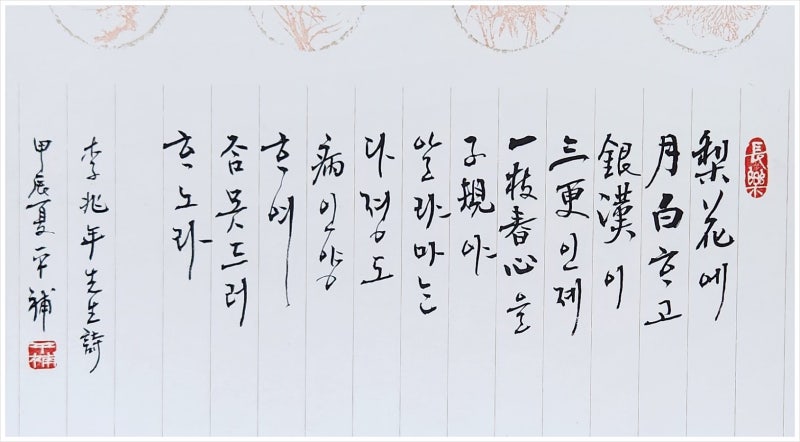 長樂
梨花에
月白ᄒᆞ고
銀漢이
三更인제
一枝春心을
子規야
알랴마는
다졍도
病인양
ᄒᆞ여
ᄌᆞᆷ못드러
ᄒᆞ노라
李兆年先生詩
甲辰夏 平補
平補